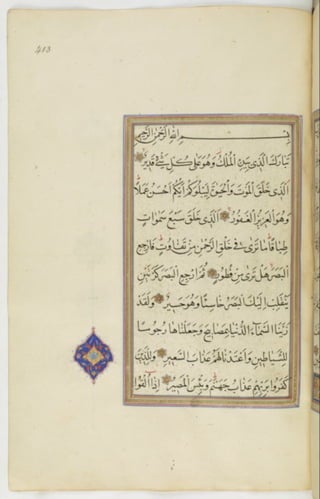 413
بسم الله الرحمن الرحيم
تبارك الذى بيده الملك وهو على كل شئ قدير
الذى خلق الموت والحيوة ليبلوكم ايكم احسن عملا
وهو العزيز الغفور الذى خلق سبع سموات
طباقا ما ترى فى خلق الرحمن من تفاوت فارجع
البصر هل ترى من فطور ثم ارجع البصر كرتين
ينقلب اليك البصر خاسئا وهو حسير ولقد
زينا السماء الدنيا بمصابيح وجعلناها رجوما
للشياطين واعتدنا لهم عذاب السعير وللذين
كفروا بربهم عذاب جهنم وبئس المصير اذا القوا